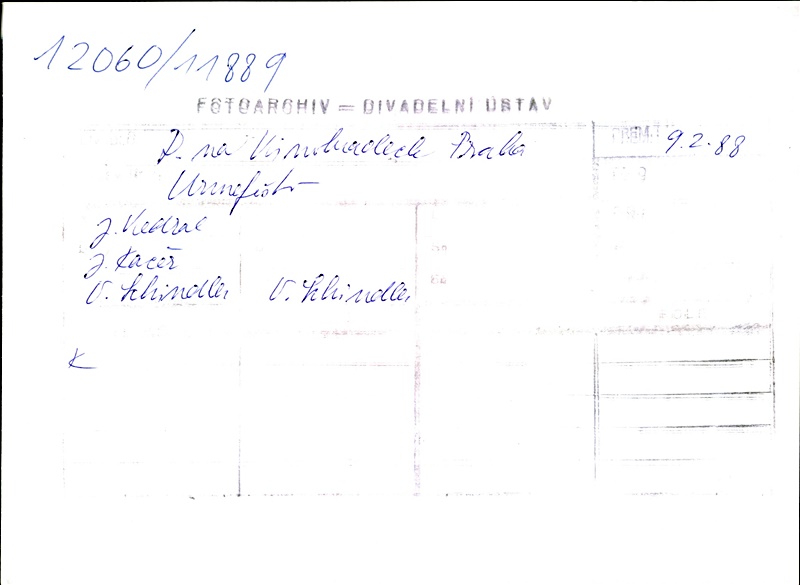 12060/11889
FOTOARCHIV = DIVADELNÍ ÚSTAV
D. na Vinohradech Praha
PREM.: 9.2.88
Urmefisto
J. Vedral
J. Kacer
V. Schindler V. Schindler
K